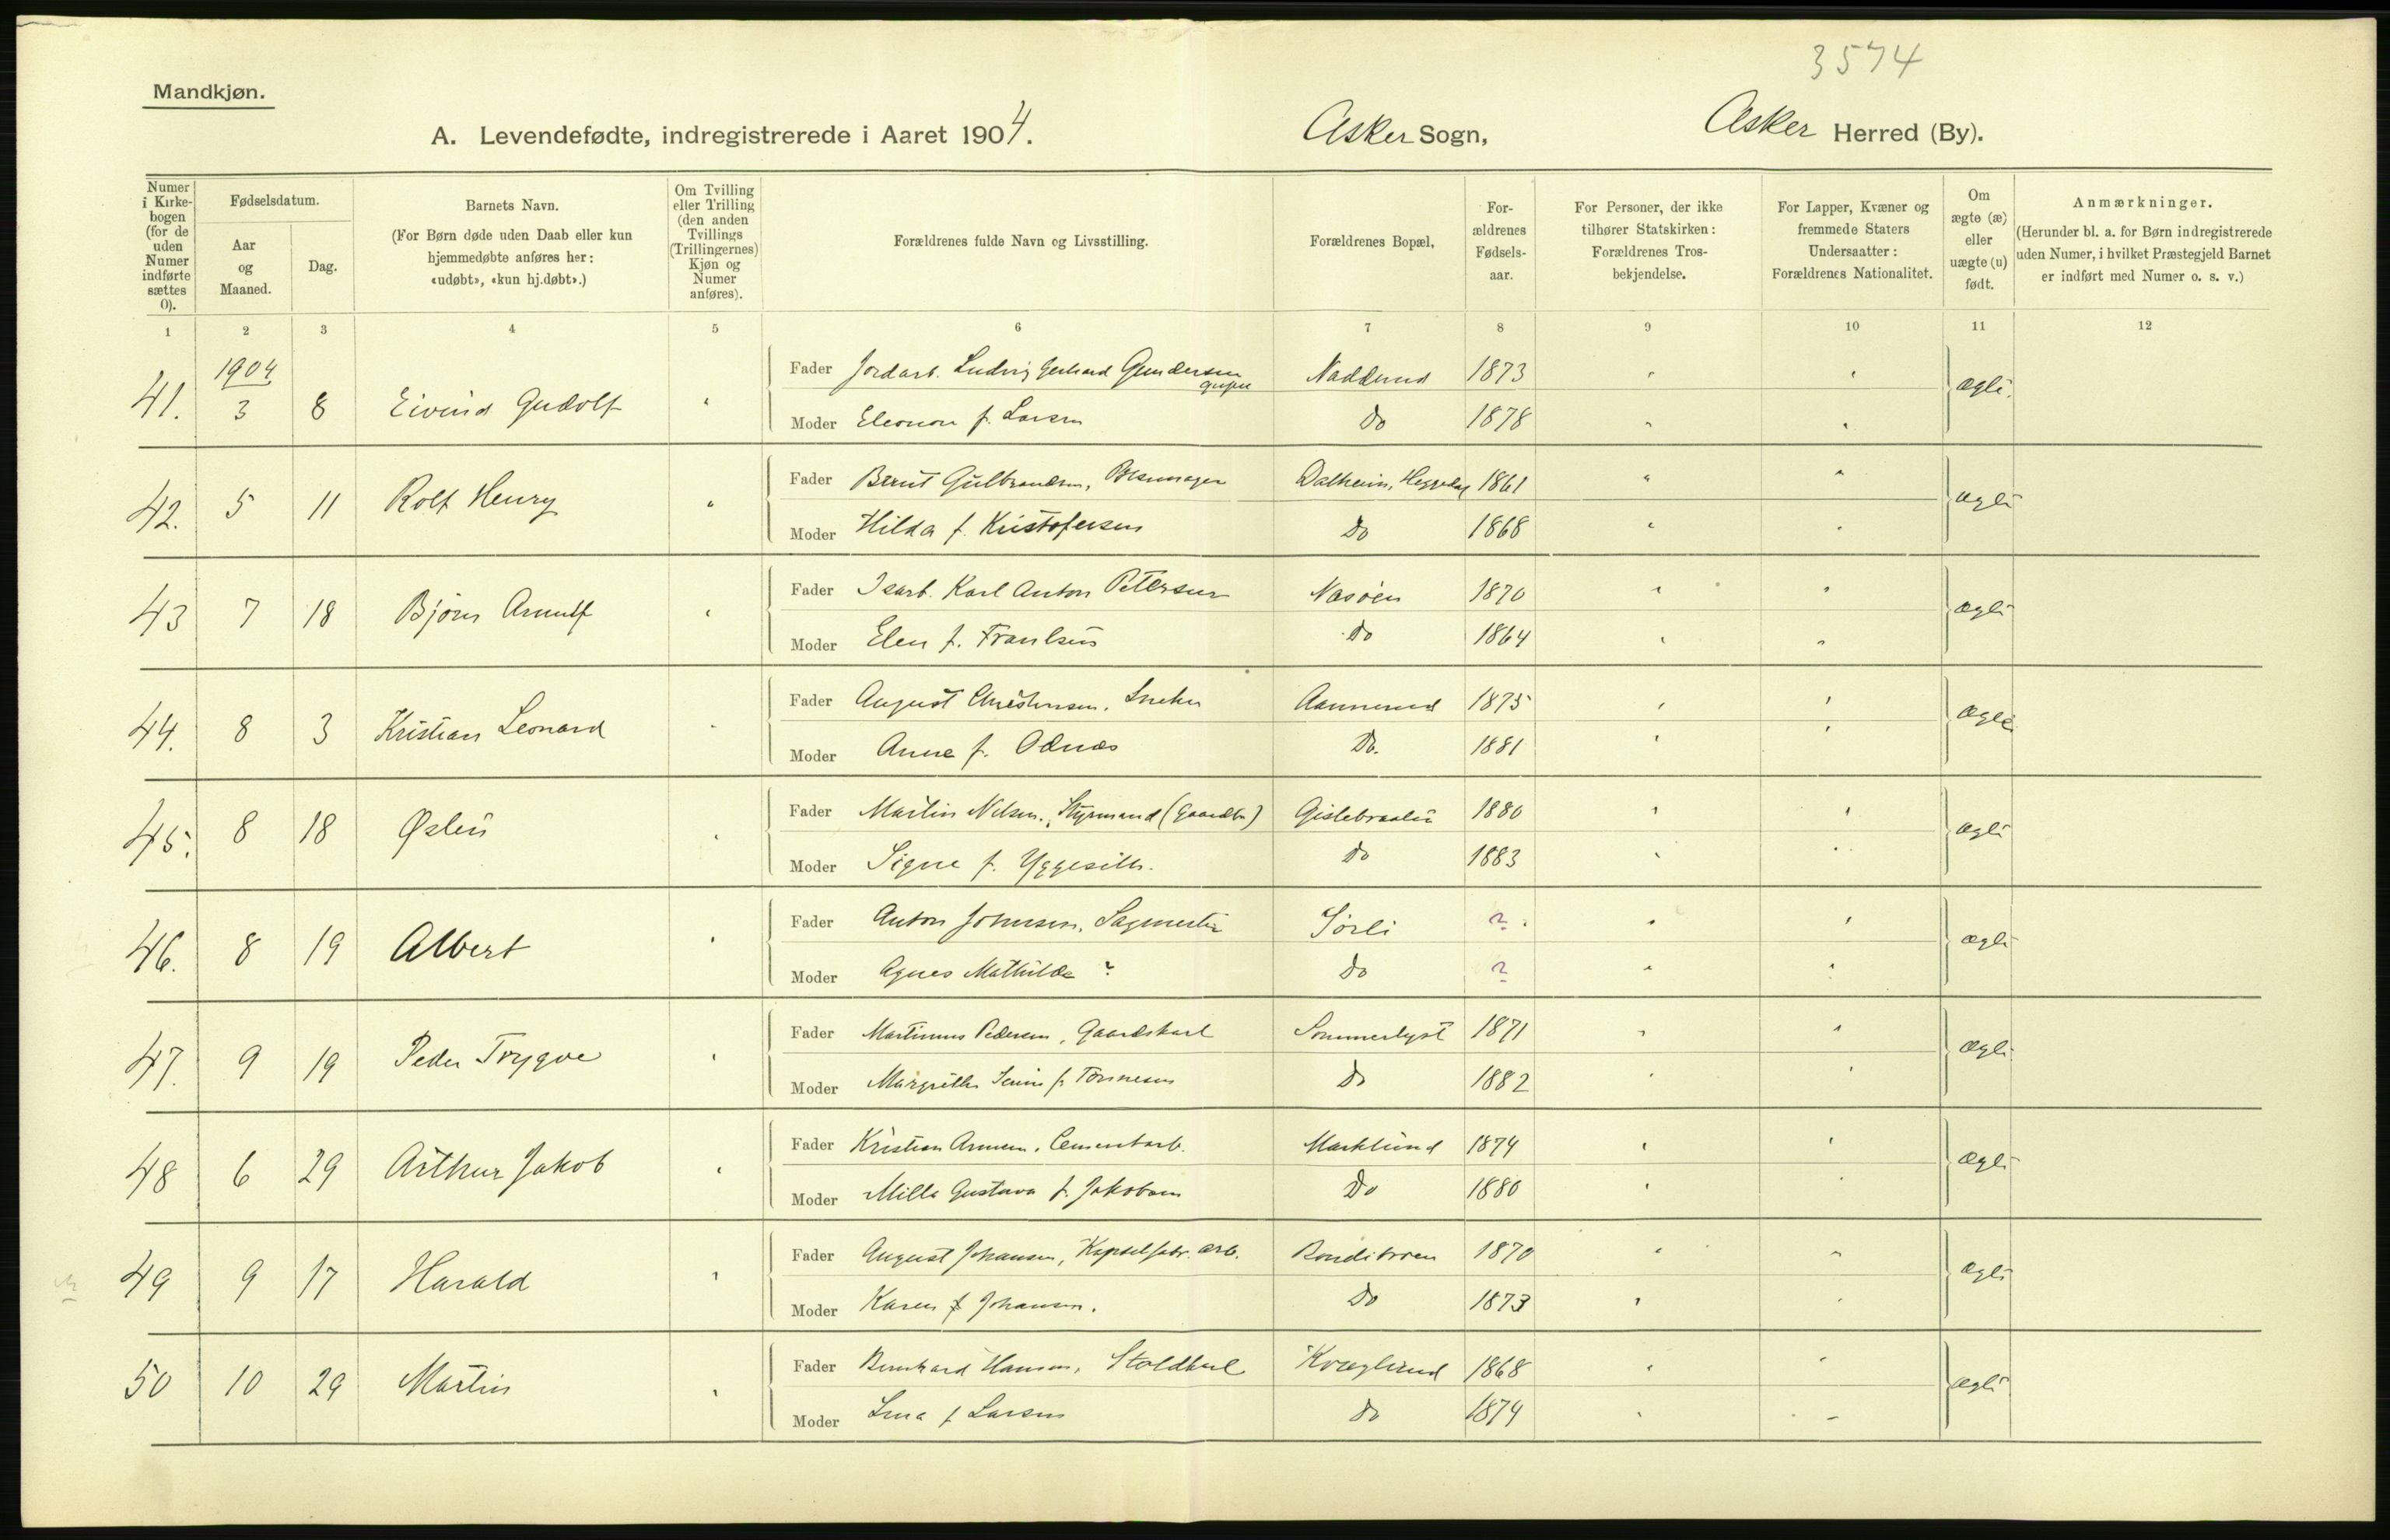 3574
Mandkjøn.
A. Levendefødte, indregistrerede i Aaret 1904. Asker Sogn, Asker Herred (By).
Numer i Kirke-bogen (for de uden Numer indførte sættes 0).
Fødselsdatum.
Aar og Maaned.
Dag.
Barnets Navn.
(For Børn døde uden Daab eller kun hjemmedøbte anføres her: «udøbt», «kun hj.døbt».)
Om Tvilling eller Trilling (den anden Tvillings (Trillingernes) Kjøn og Numer anføres).
Forældrenes fulde Navn og Livsstilling.
Forældrenes Bopæl,
For-ældrenes Fødsels-aar.
For Personer, der ikke tilhører Statskirken: Forældrenes Tros-bekjendelse.
For Lapper, Kvæner og fremmede Staters Undersaatter: Forældrenes Nationalitet.
Om ægte (æ) eller uægte (u) født.
Anmærkninger.
(Herunder bl. a. for Børn indregistrerede uden Numer, i hvilket Præstegjeld Barnet er indført med Numer o. s. v.)
1 2 3 4 5 6 7 8 9 10 11 12
41. 1904 3 8 Eivind Gudolf " Fader Jordarb. Ludvig Gerhard Gundersen Naddrud 1873 " " ægte
Moder Eleonore f. Larsen Do 1878 " "
42. 5 11 Rolf Henry " Fader Bernt Gulbrandsen, Dalheim, Heggedal 1861 " " ægte
Moder Hilda f. Kristofersen Do 1868 " "
43 7 18 Bjørn Arnulf " Fader Isarb. Karl Anton Petersen Nesøen 1870 " " ægte
Moder Elen f. Do 1864 " "
44. 8 3 Kristian Leonard " Fader August Christensen, Sneker 1875 " " ægte
Moder Anne f. Odnæs Do. 1881 " "
45. 8 18 Øslen " Fader Martin Nilsen, Styrmand (Gaardbr) 1880 " " ægte
Moder Signe f. Do 1883 " "
46. 8 19 Albert " Fader Anton Johnsen, Sagmester Sørli ? " " ægte
Moder Agnes Mathilde ? Do ? " "
47. 9 19 Peder Trygve " Fader Martinus Pedersen, Gaardskarl Sommerlyst 1871 " " ægte
Moder f. Tønnesen Do 1882 " "
48 6 29 Arthur Jakob " Fader Kristian Arnesen, Cementarb. 1874 " " ægte
Moder Milla Gustava f. Jakobsen Do 1880 " "
49 9 17 Harald " Fader August Johansen, Kapselfabr. arb. Bondibroen 1870 " " ægte
Moder Karen f Johansen. Do 1873 " "
50 10 29 Martin " Fader Bernhard Hansen, Staldkarl 1868 " " ægte
Moder f Larsen Do 1874 " "